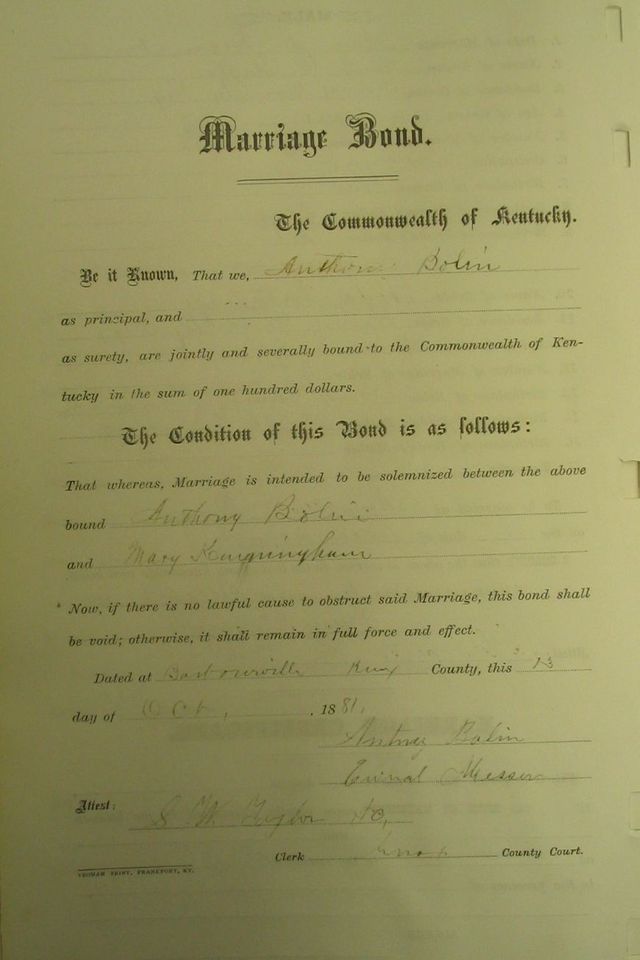 Marriage Bond.
The Commonwealth of Kentucky.
Be it Known, That we, Anthony Bolin
as principal, and
as surety, are jointly and severally bound to the Commonwealth of Ken-
tucky in the sum of one hundred dollars.
The Condition of this Bond is as follows:
That whereas, Marriage is intended to be solemnized between the above
bound Anthony Bolin
and Mary
Now, if there is no lawful cause to obstruct said Marriage, this bond shall
be void; otherwise, it shall remain in full force and effect.
Dated at Barbourville Knox County, this 13
day of Oct, 1881,
Bolin
Messer
Attest: S W
Clerk Knox County Court.
YEOMAN PRINT, FRANKFORT, KY.